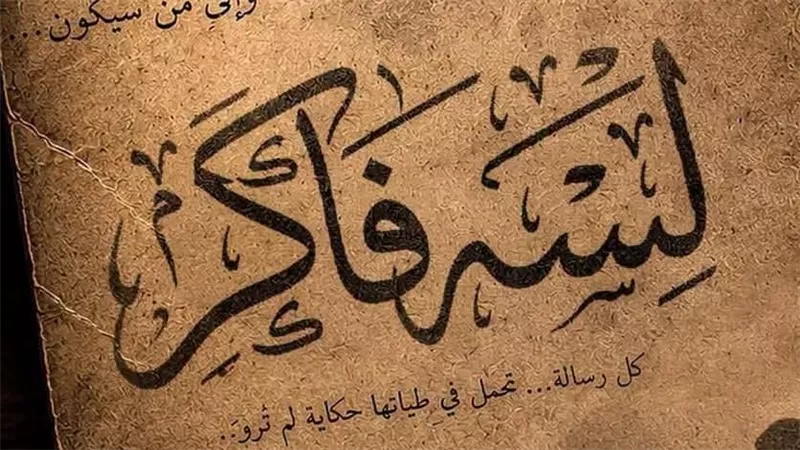 وإلى من سيكون...
لِسَه فَاكِرَ
كل رسالة... تحمل في طياتها حكاية لم تُروَ..